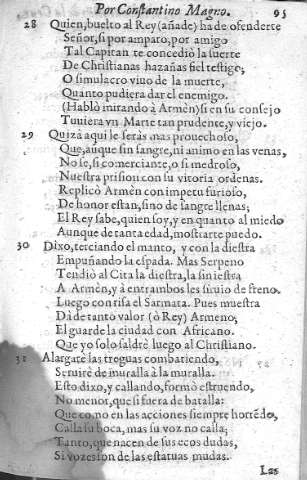 Por Constantino Magno. 95
28 Quien, buelto al Rey (añade) ha de ofenderte
Señor, si por amparo, por amigo
Tal Capitan te concediò la suerte
De Christianas hazañas fiel testigo;
O simulacro viuo de la muerte,
Quanto pudiera dar el enemigo.
(Hablò mirando à Armèn) si en su consejo
Tuuiera vn Marte tan prudente, y viejo.
29 Quizà aqui le seràs mas prouechoso,
Que, aunque sin sangre, ni animo en las venas,
No se, si comerciante, o si medroso,
Nuestra prision con su vitoria ordenas.
Replicò Armèn con impetu furioso,
De honor estan, sino de sangre llenas;
El Rey sabe, quien soy, y en quanto al miedo
Aunque de tanta edad, mostrarte puedo.
30 Dixo, terciando el manto, y con la diestra
Empuñando la espada. Mas Serpeno
Tendiò al Cita la diestra, la siniestra
A Armèn, y à entrambos les siruio de freno.
Luego con risa el Sarmata. Pues muestra
Dà de tanto valor (ò Rey) Armeno;
El guarde la ciudad con Africano.
Que yo solo saldrè luego al Christiano.
31 Alargatè las treguas combatiendo,
Seruirè de muralla à la muralla.
Esto dixo, y callando, formò estruendo,
No menor, que si fuera de batalla:
Que como en las acciones siempre horrẽdo,
Calla su boca, mas su voz no calla;
Tanto, que nacen de sus ecos dudas,
Si vozes son de las estatuas mudas.
Las